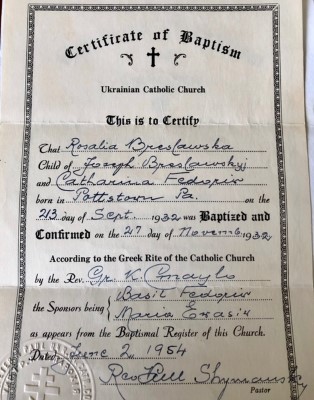 Certificate of Baptism
Ukrainian Catholic Church
This is to Certify
That Rosalia Breslawska
Child of Joseph Breslawskyj
and Catharina Fedoriw
born in Pottstown Pa. on the
day of Sept 1932 was Baptized and
Confirmed on the 27 day of Novemb 1932,
According to the Greek Rite of the Catholic Church
by the Rev. Gr. K.
the Sponsors being Basil Fedoriw
Maria
as appears from the Baptismal Register of this Church.
Dated June 2, 1954
Rev Paul Shymansky
Pastor